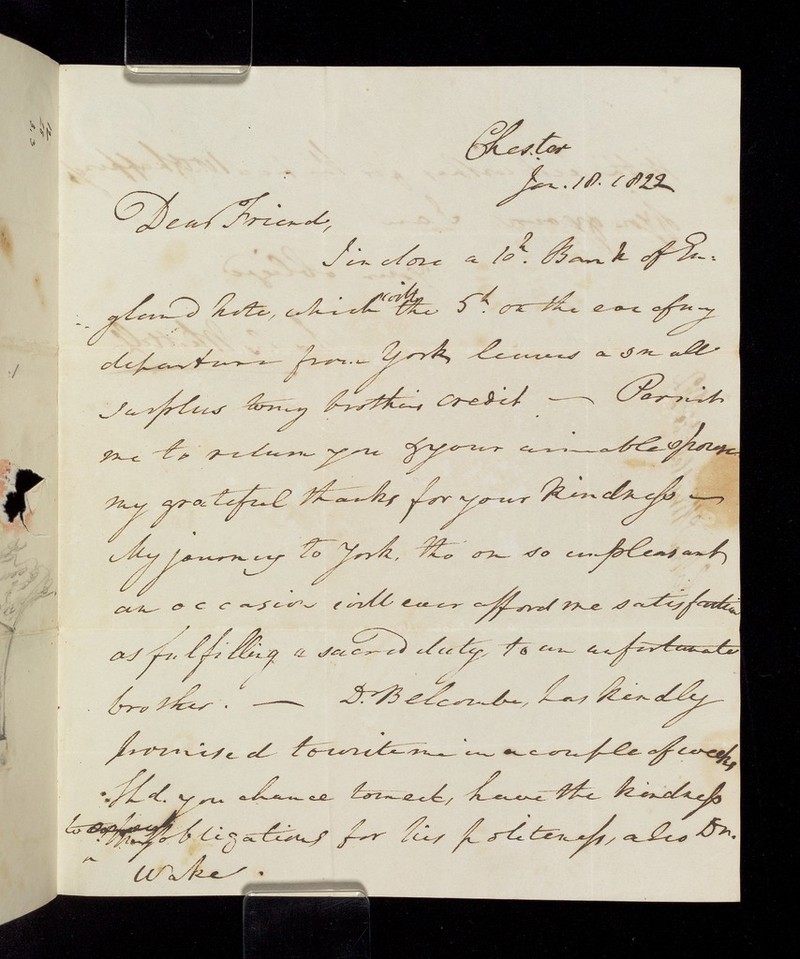 Chester
Jan. 18. 1822
Dear Friend,
I inclose a 10£. Bank of En=
gland note, which with the 5£. on the eve of my
departure from York, leaves a small
surplus to my brothers credit — Permit
me to return you & your aimable spouse
my grateful thanks for your kindness —
My journey to York, tho on so unpleasant
an occasion will ever afford me satisfaction
as fulfilling a sacred duty to an unfortunate
brother. — Dr. Belcombe, has kindly
promised to write me in a couple of weeks
Shd. you chance to meet, have the kindness
to obligations for his politeness, also Dr.
Wake.